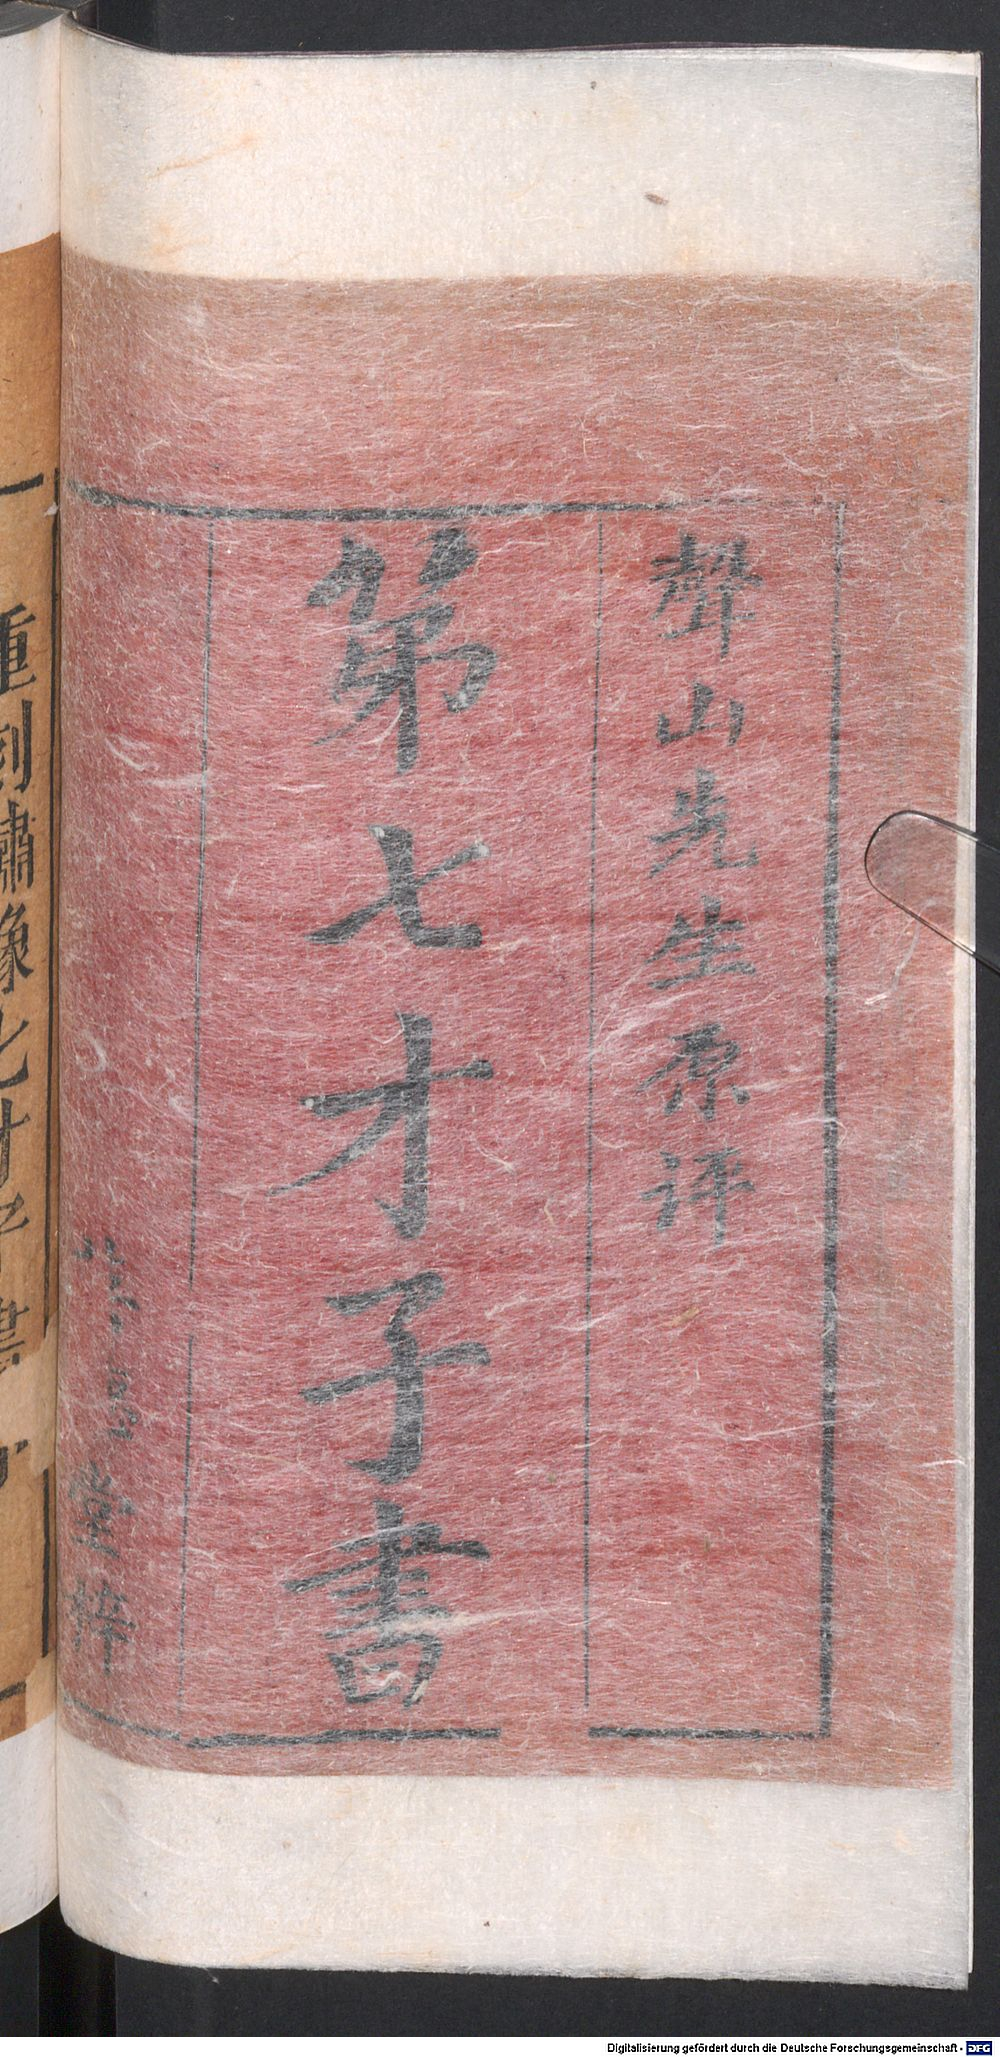 聲山先生原評
第七才子書
堂梓
重刻繡像七才子書
Digitalisierung gefördert durch die Deutsche Forschungsgemeinschaft - DFG